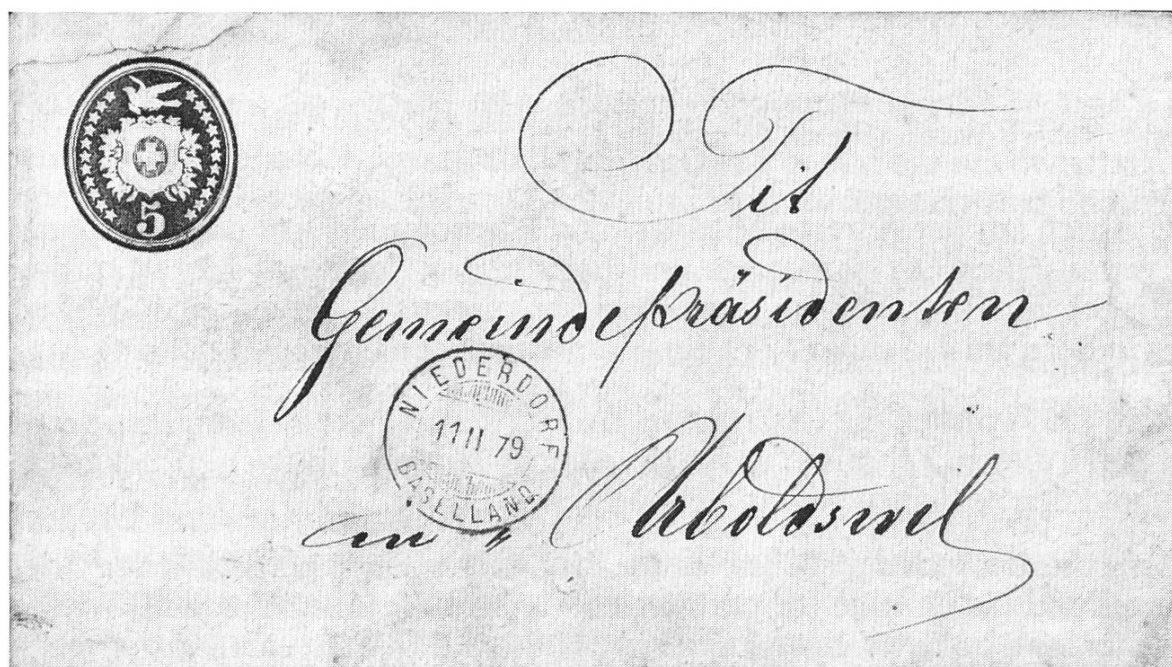 5
Tit
Gemeindepräsidenten
NIEDERDORF
11 II 79
BASELLAND
in Arboldswil